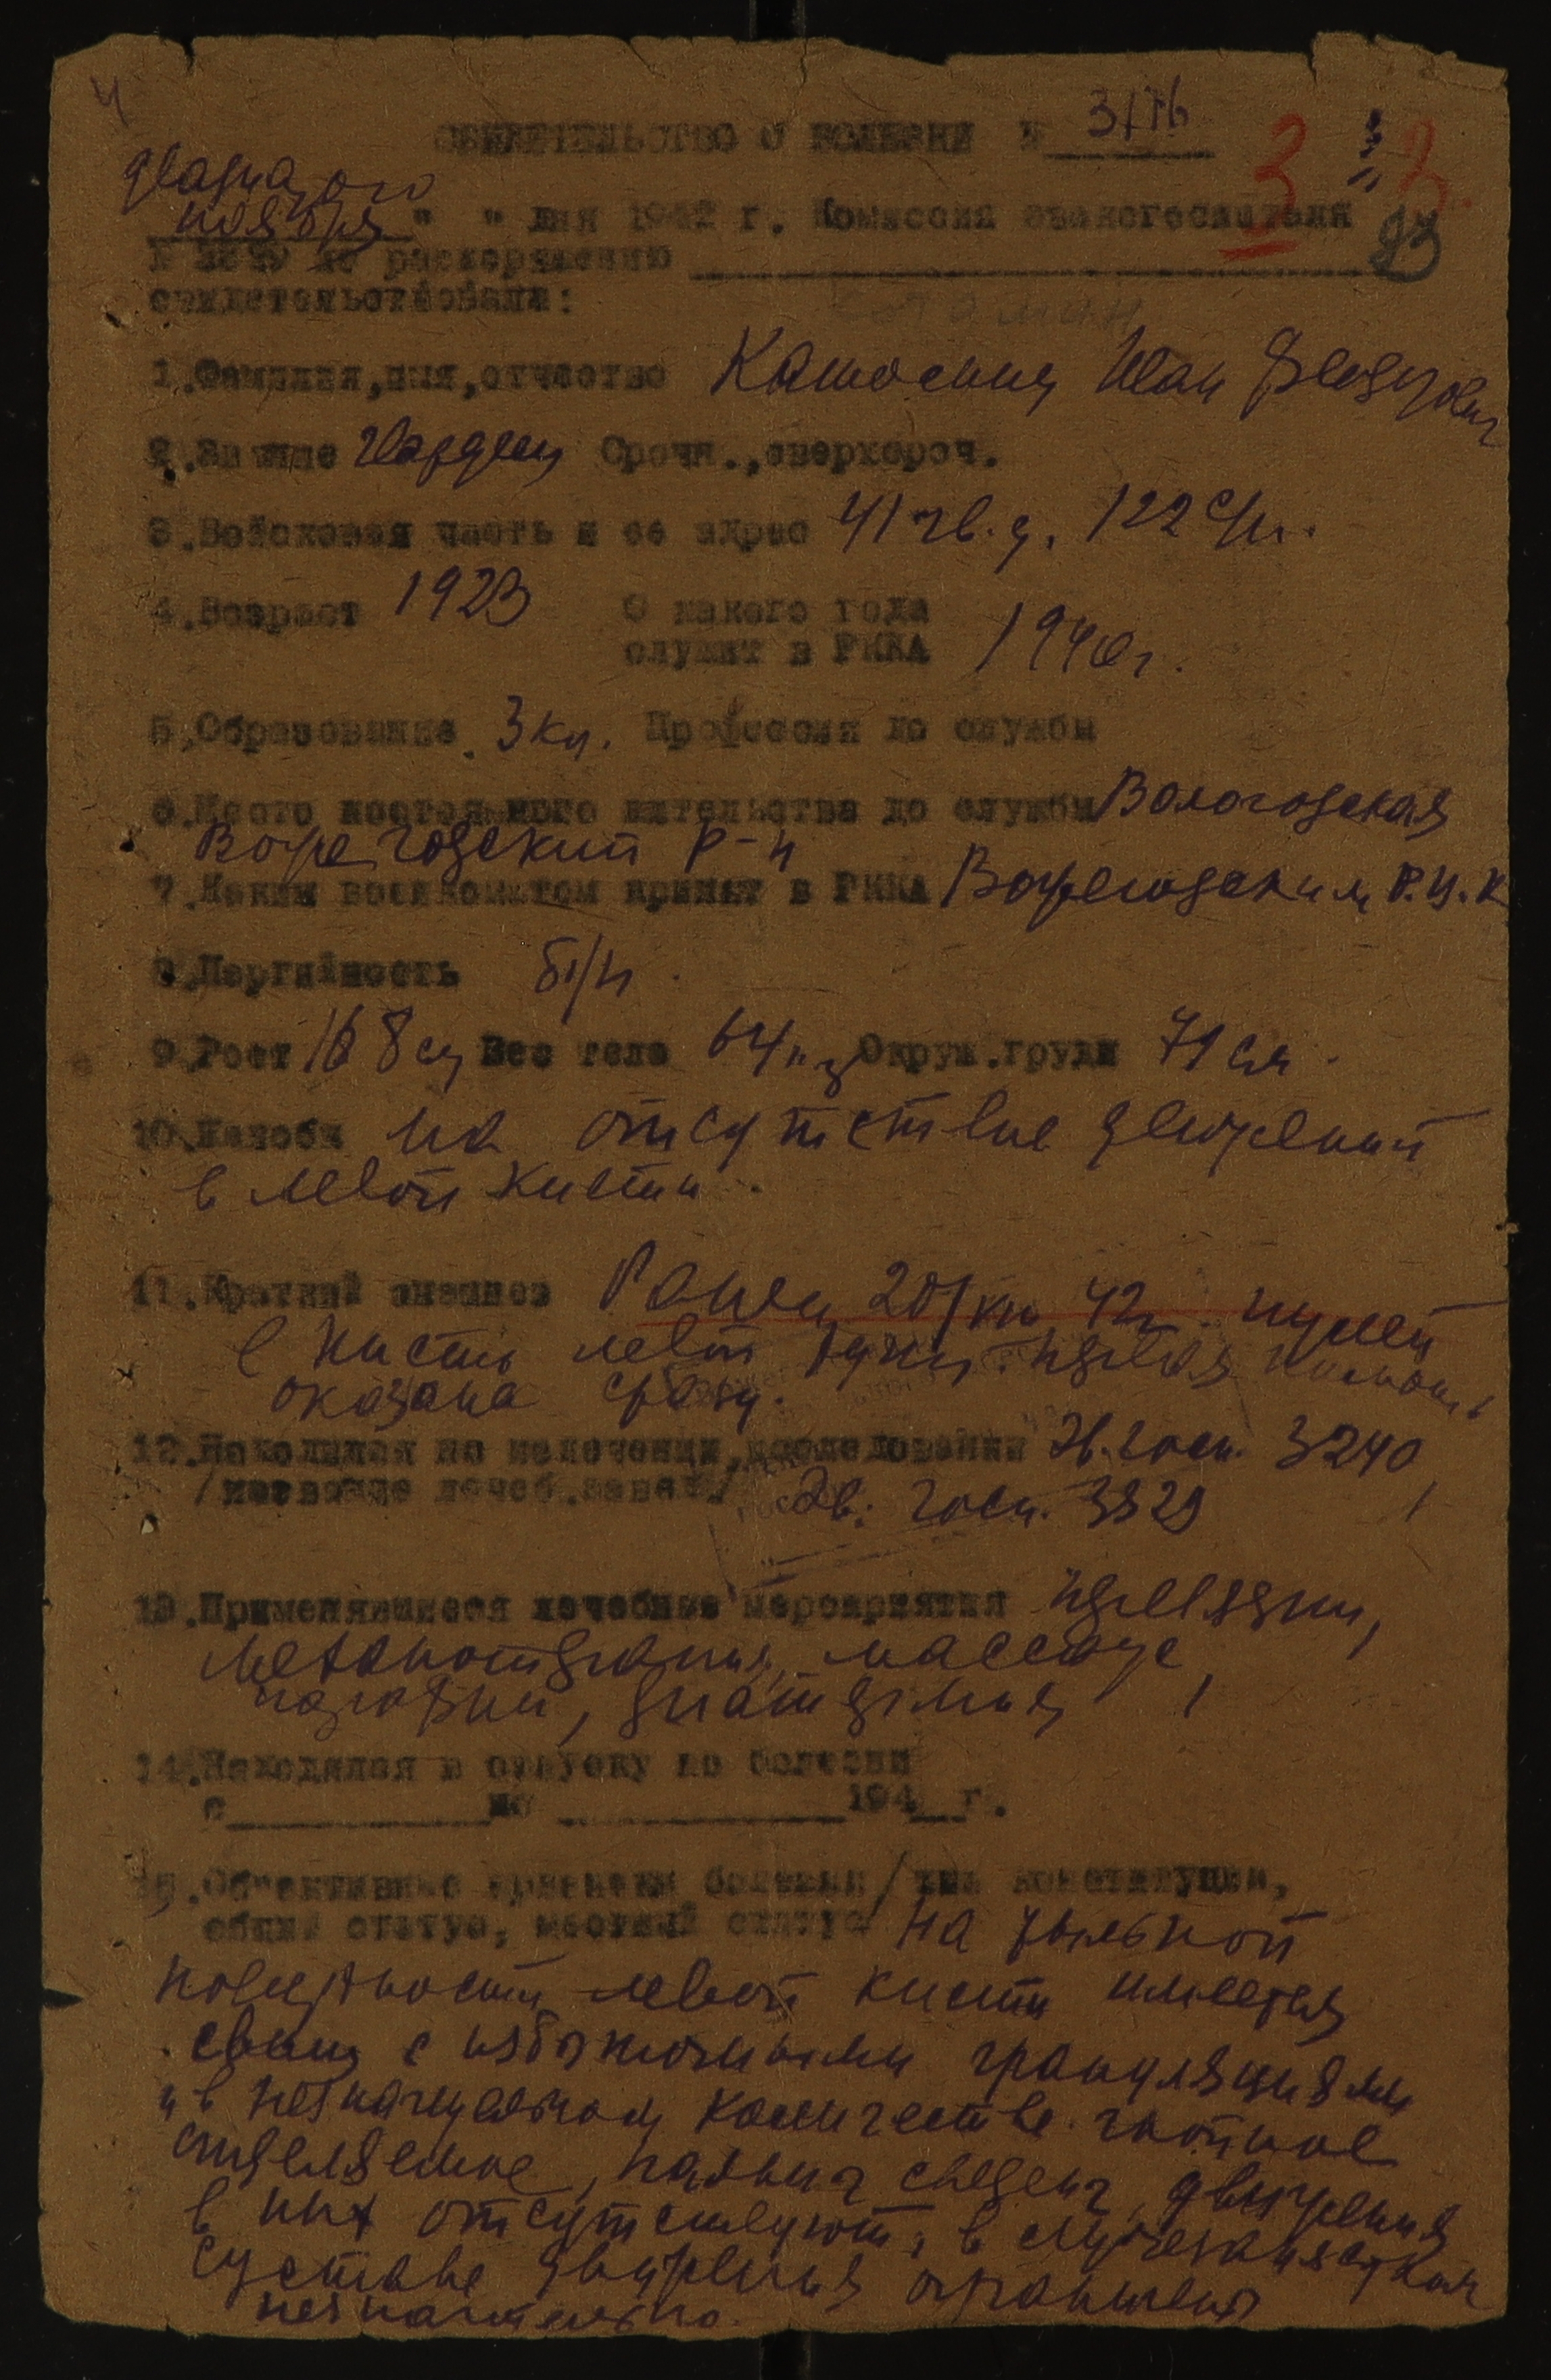 СВИДЕТЕЛЬСТВО О БОЛЕЗНИ №
двадцатого
ноября " " дня 1942 г. Комиссия эвакогоспиталя
по распоряжению
свидетельствовала:
1.Фамилия,имя,отчество Иван Федорович
2.Звание Срочн.,сверхсроч.
3.Войсковая часть и ее адрес 41 гв. д. 122 с/п.
4.Возраст 1923 С какого года
служит в РККА 1940г.
5.Образование 3 кл. Профессия до службы
6.Место постоянного жительства до службы Вологодская
Вожегодский р-н
7.Каким военкоматом принят в РККА Вожегодским
8.Партийность б/п.
9.Рост 168 см Вес тела 64 кг Окруж.груди 79 см.
10.Жалобы на отсутствие движений
в левой кисти.
11.Краткий анамнез Ранен 42г. пулей
в кисть левой руки. помощь
оказана сразу.
12.Находился на излечении, исследовании Эв. госп. 3240
/название лечеб.завед./ Эв. госп.
13.Применявшиеся лечебные мероприятия
механотерапия, массаж,
диатермия
14.Находился в отпуску по болезни
с по 194 г.
15.Объективные признаки болезни/тип конституции,
общий статус, местный статус На тыльной
поверхности левой кисти имеется
свищ с избыточными грануляциями
и в незначительном количестве гнойное
отделяемое, пальцы сведены, движения
в них отсутствуют, в лучезапястном
суставе движения ограничены
незначительно.